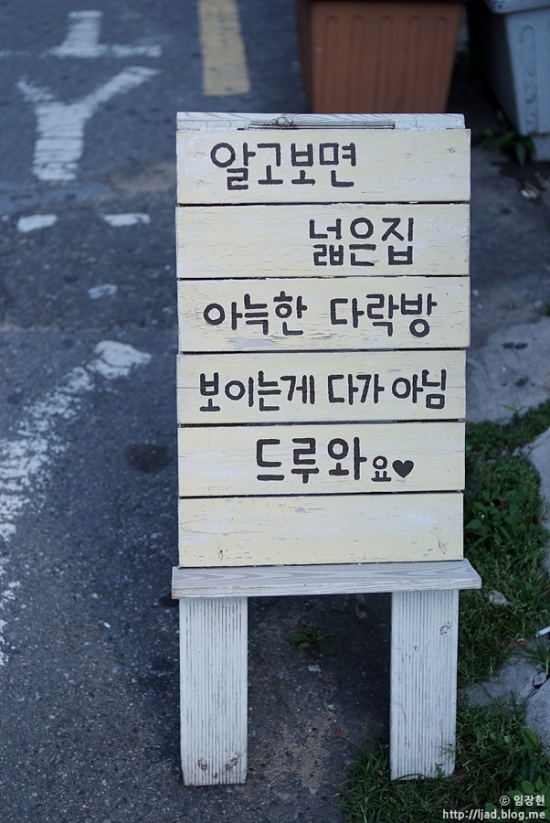 알고보면
넓은집
아늑한 다락방
보이는게 다가 아님
드루와요♥
© 임장현
http://ljad.blog.me